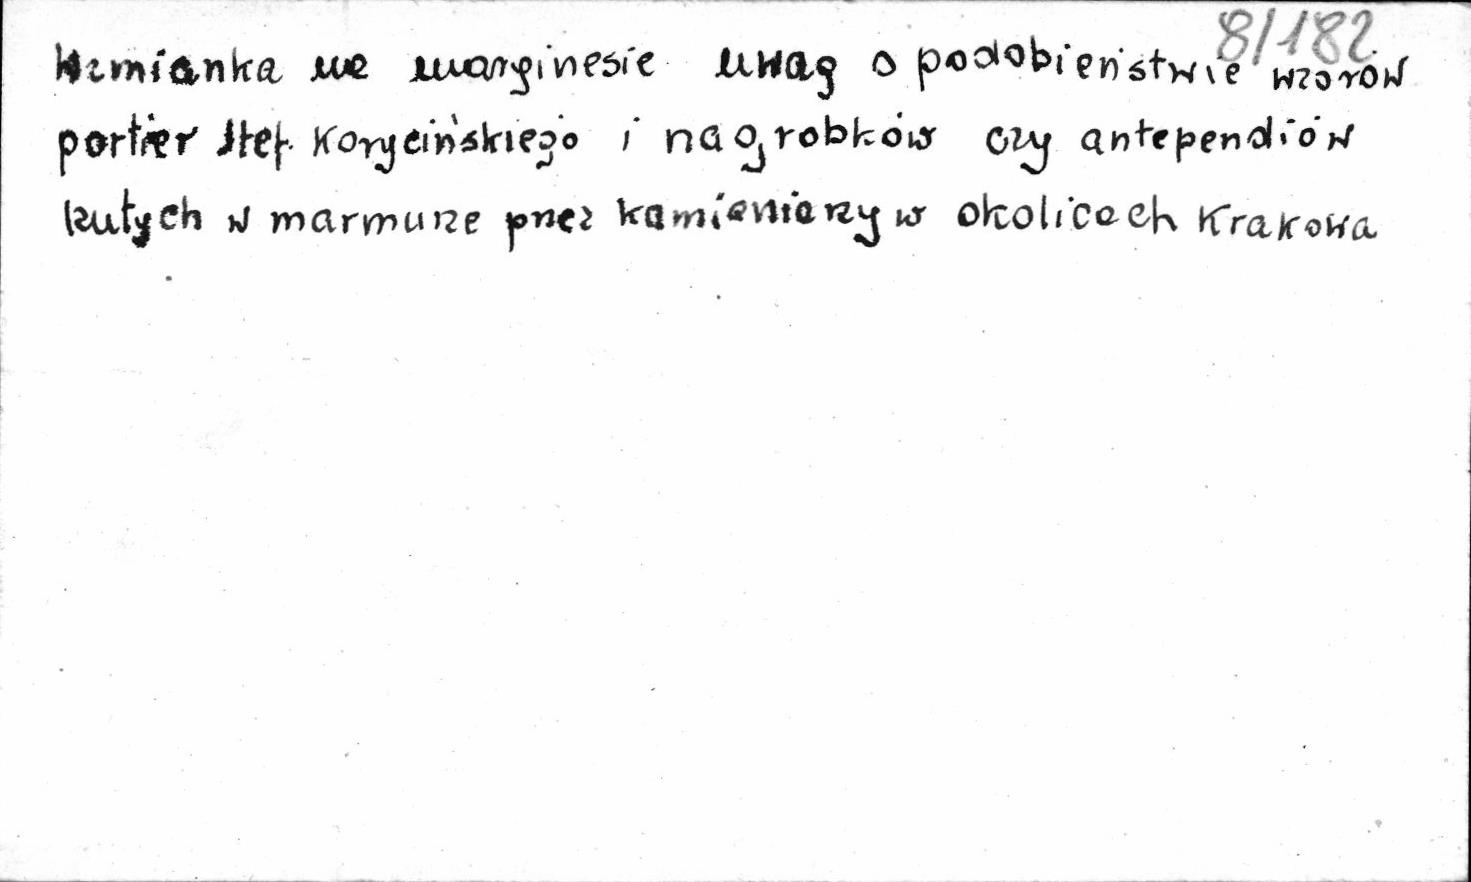 8/182
Wzmianka na marginesie uwag o podobieństwie wzorów
portier Stef. Korycińskiego i nagrobków czy antependiów
kutych w marmurze przez kamieniarzy w okolicach Krakowa